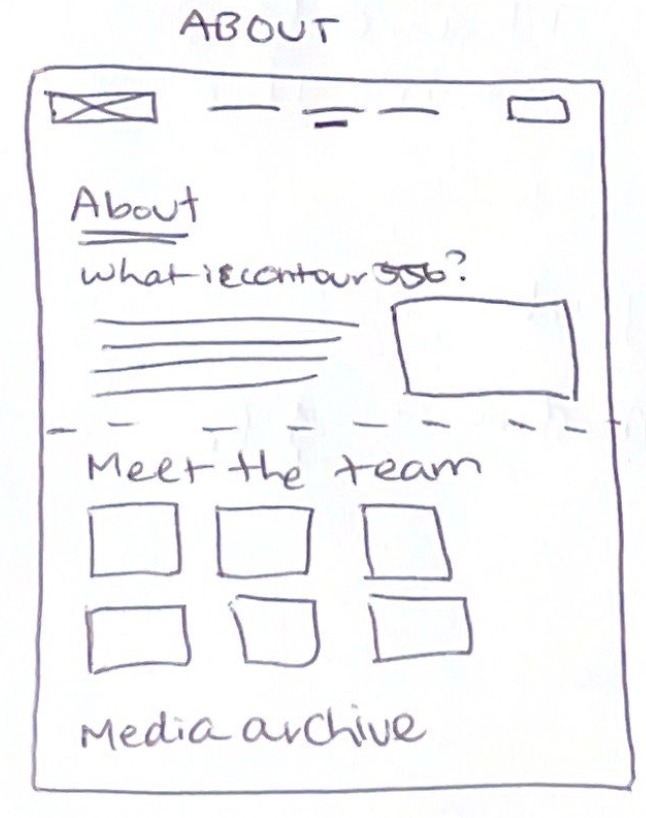 ABOUT
About
what is contour 556?
Meet the team
Media archive